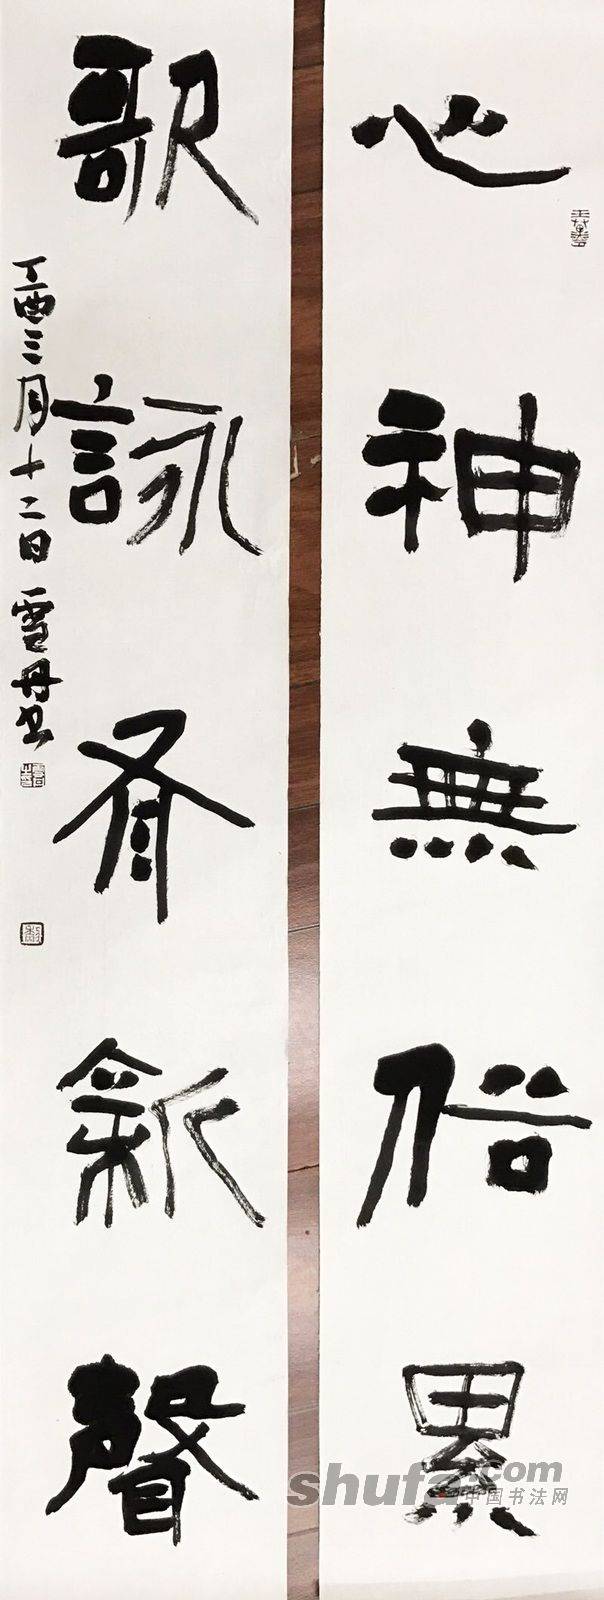 心神無俗累
歌詠有新聲
丁酉三月十二日雪丹書
shufa.com
中国书法网